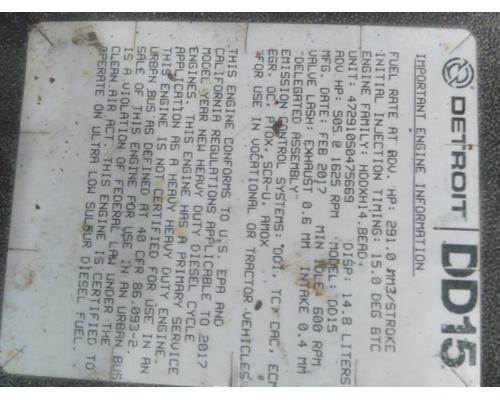 DETROIT DD15
IMPORTANT ENGINE INFORMATION
FUEL RATE AT ADV. HP: 291.0 MM3/STROKE
INITIAL INJECTION TIMING: 15.0 DEG BTC
ENGINE FAMILY: HDDXH14.8EAD, DISP: 14.8 LITERS
UNIT: 472910S0425669 MODEL: DD15
ADV HP: 505 @ 1625 RPM MIN IDLE: 600 RPM
MFG. DATE: FEB 2017
VALVE LASH: EXHAUST 0.6 MM INTAKE 0.4 MM
"DELEGATED ASSEMBLY"
EMISSION CONTROL SYSTEMS: DDI, TC, CAC, ECM
EGR, OC, PTOX, SCR-U, AMOX
"FOR USE IN VOCATIONAL OR TRACTOR VEHICLES"
THIS ENGINE CONFORMS TO U.S. EPA AND
CALIFORNIA REGULATIONS APPLICABLE TO 2017
MODEL YEAR NEW HEAVY DUTY DIESEL CYCLE
ENGINES. THIS ENGINE HAS A PRIMARY SERVICE
APPLICATION AS A HEAVY HEAVY DUTY ENGINE.
THIS ENGINE IS NOT CERTIFIED FOR USE IN AN
URBAN BUS AS DEFINED AT 40 CFR 86.093-2.
SALE OF THIS ENGINE FOR USE IN AN URBAN BUS
IS A VIOLATION OF FEDERAL LAW UNDER THE
CLEAN AIR ACT. THIS ENGINE IS CERTIFIED TO
OPERATE ON ULTRA LOW SULFUR DIESEL FUEL.